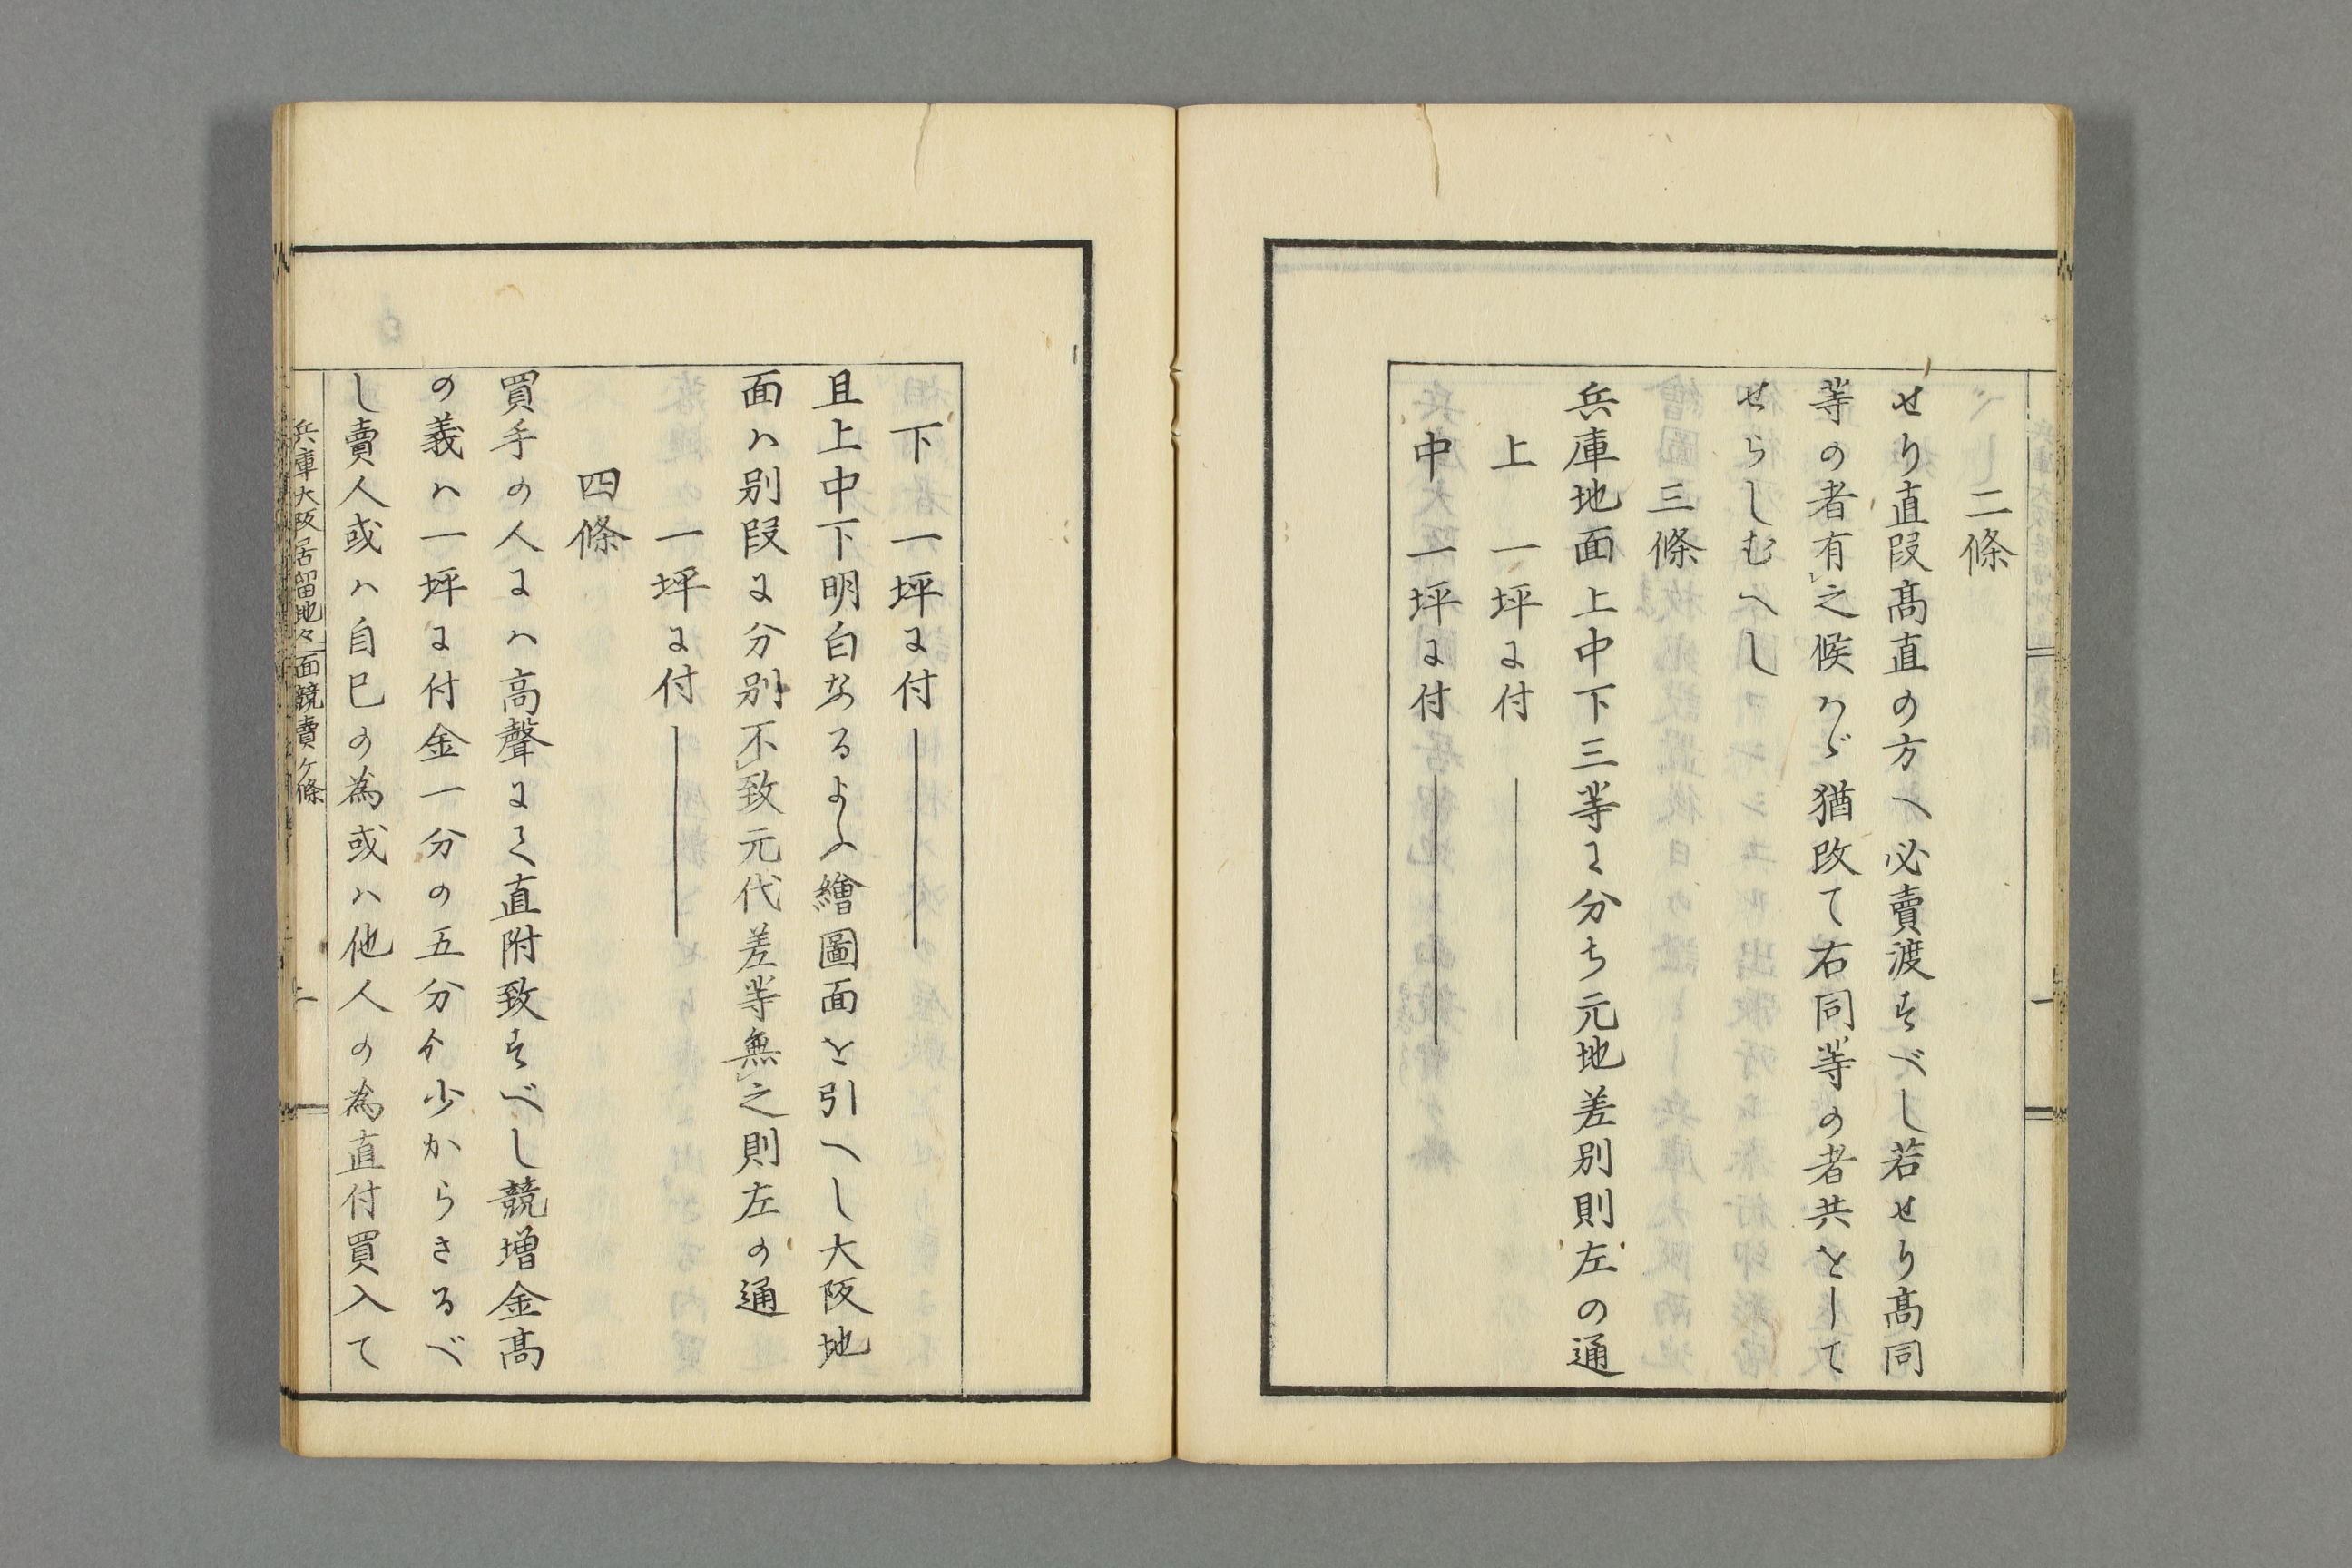 二條
せり直段髙直の方へ必賣渡すべし若せり髙同
等の者有レ之候ハゞ猶改て右同等の者共をして
せらしむへし
三條
兵庫地面上中下三等に分ち元地差別則左の通
上 一坪に付
中 一坪に付
下 一坪に付
且上中下明白なるよふ繪圖面を引へし大阪地
面ハ別段に分別不レ致元代差等無レ之則左の通
一坪に付
四條
買手の人にハ高聲にて直附致すべし競増金髙
の義ハ一坪に付金一分の五分ゟ少からさるべ
し賣人或ハ自巳の為或ハ他人の為直付買入て
兵庫大阪居留地々面競賣ケ條